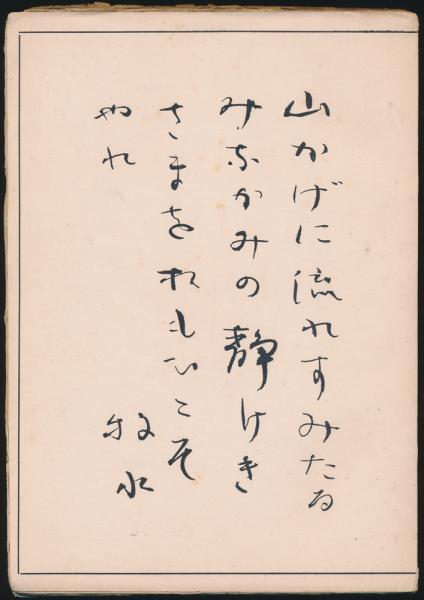 山かげに流れすみたる
みなかみの静けき
さまをおもひこそ
やれ
牧水